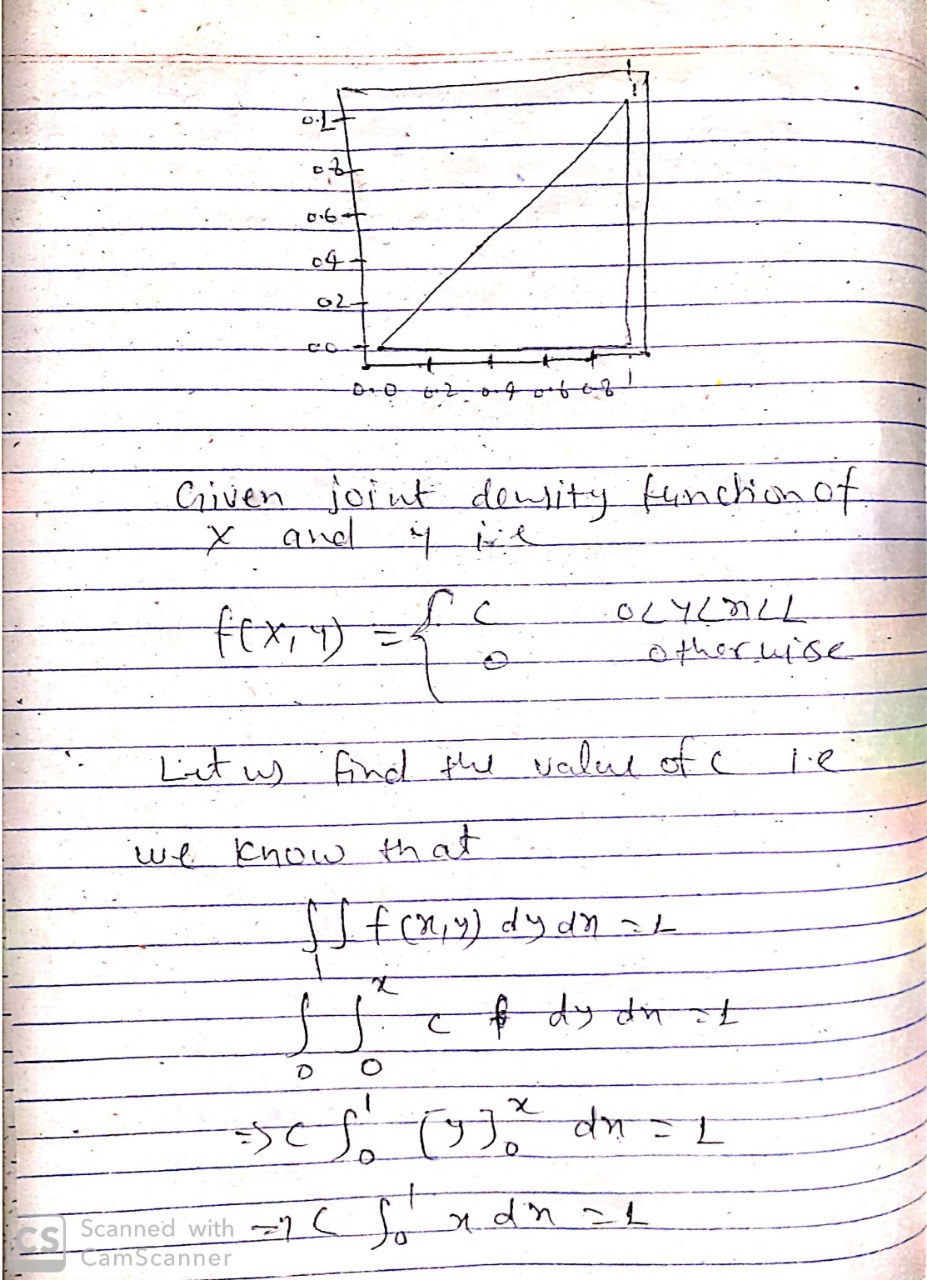 0.1
0.8
0.6
0.4
0.2
0.0
0.0 0.2 0.4 0.6 0.8 1
Given joint density function of
X and y i.e
f(X,y) = { c 0<y<x<1
0 otherwise
Let us find the value of c i.e
we know that
∫∫ f(x,y) dy dx = 1
∫₀¹ ∫₀ˣ c dy dx = 1
=> c ∫₀¹ [y]₀ˣ dx = 1
=> c ∫₀¹ x dx = 1
CS Scanned with
CamScanner